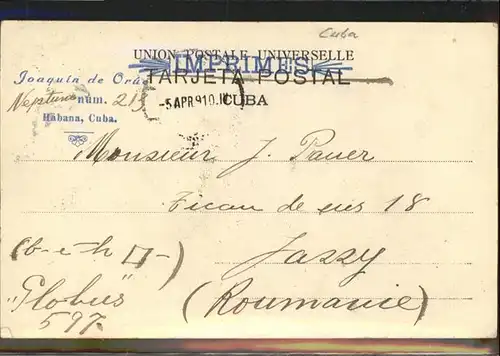 Cuba
UNION POSTALE UNIVERSELLE
IMPRIMES
TARJETA POSTAL
CUBA
Joaquin de
Neptuno num. 213
Habana, Cuba.
-5 APR 910
Monsieur J. Pauer
18
Jassy
(Roumanie)
"Globus"
597.